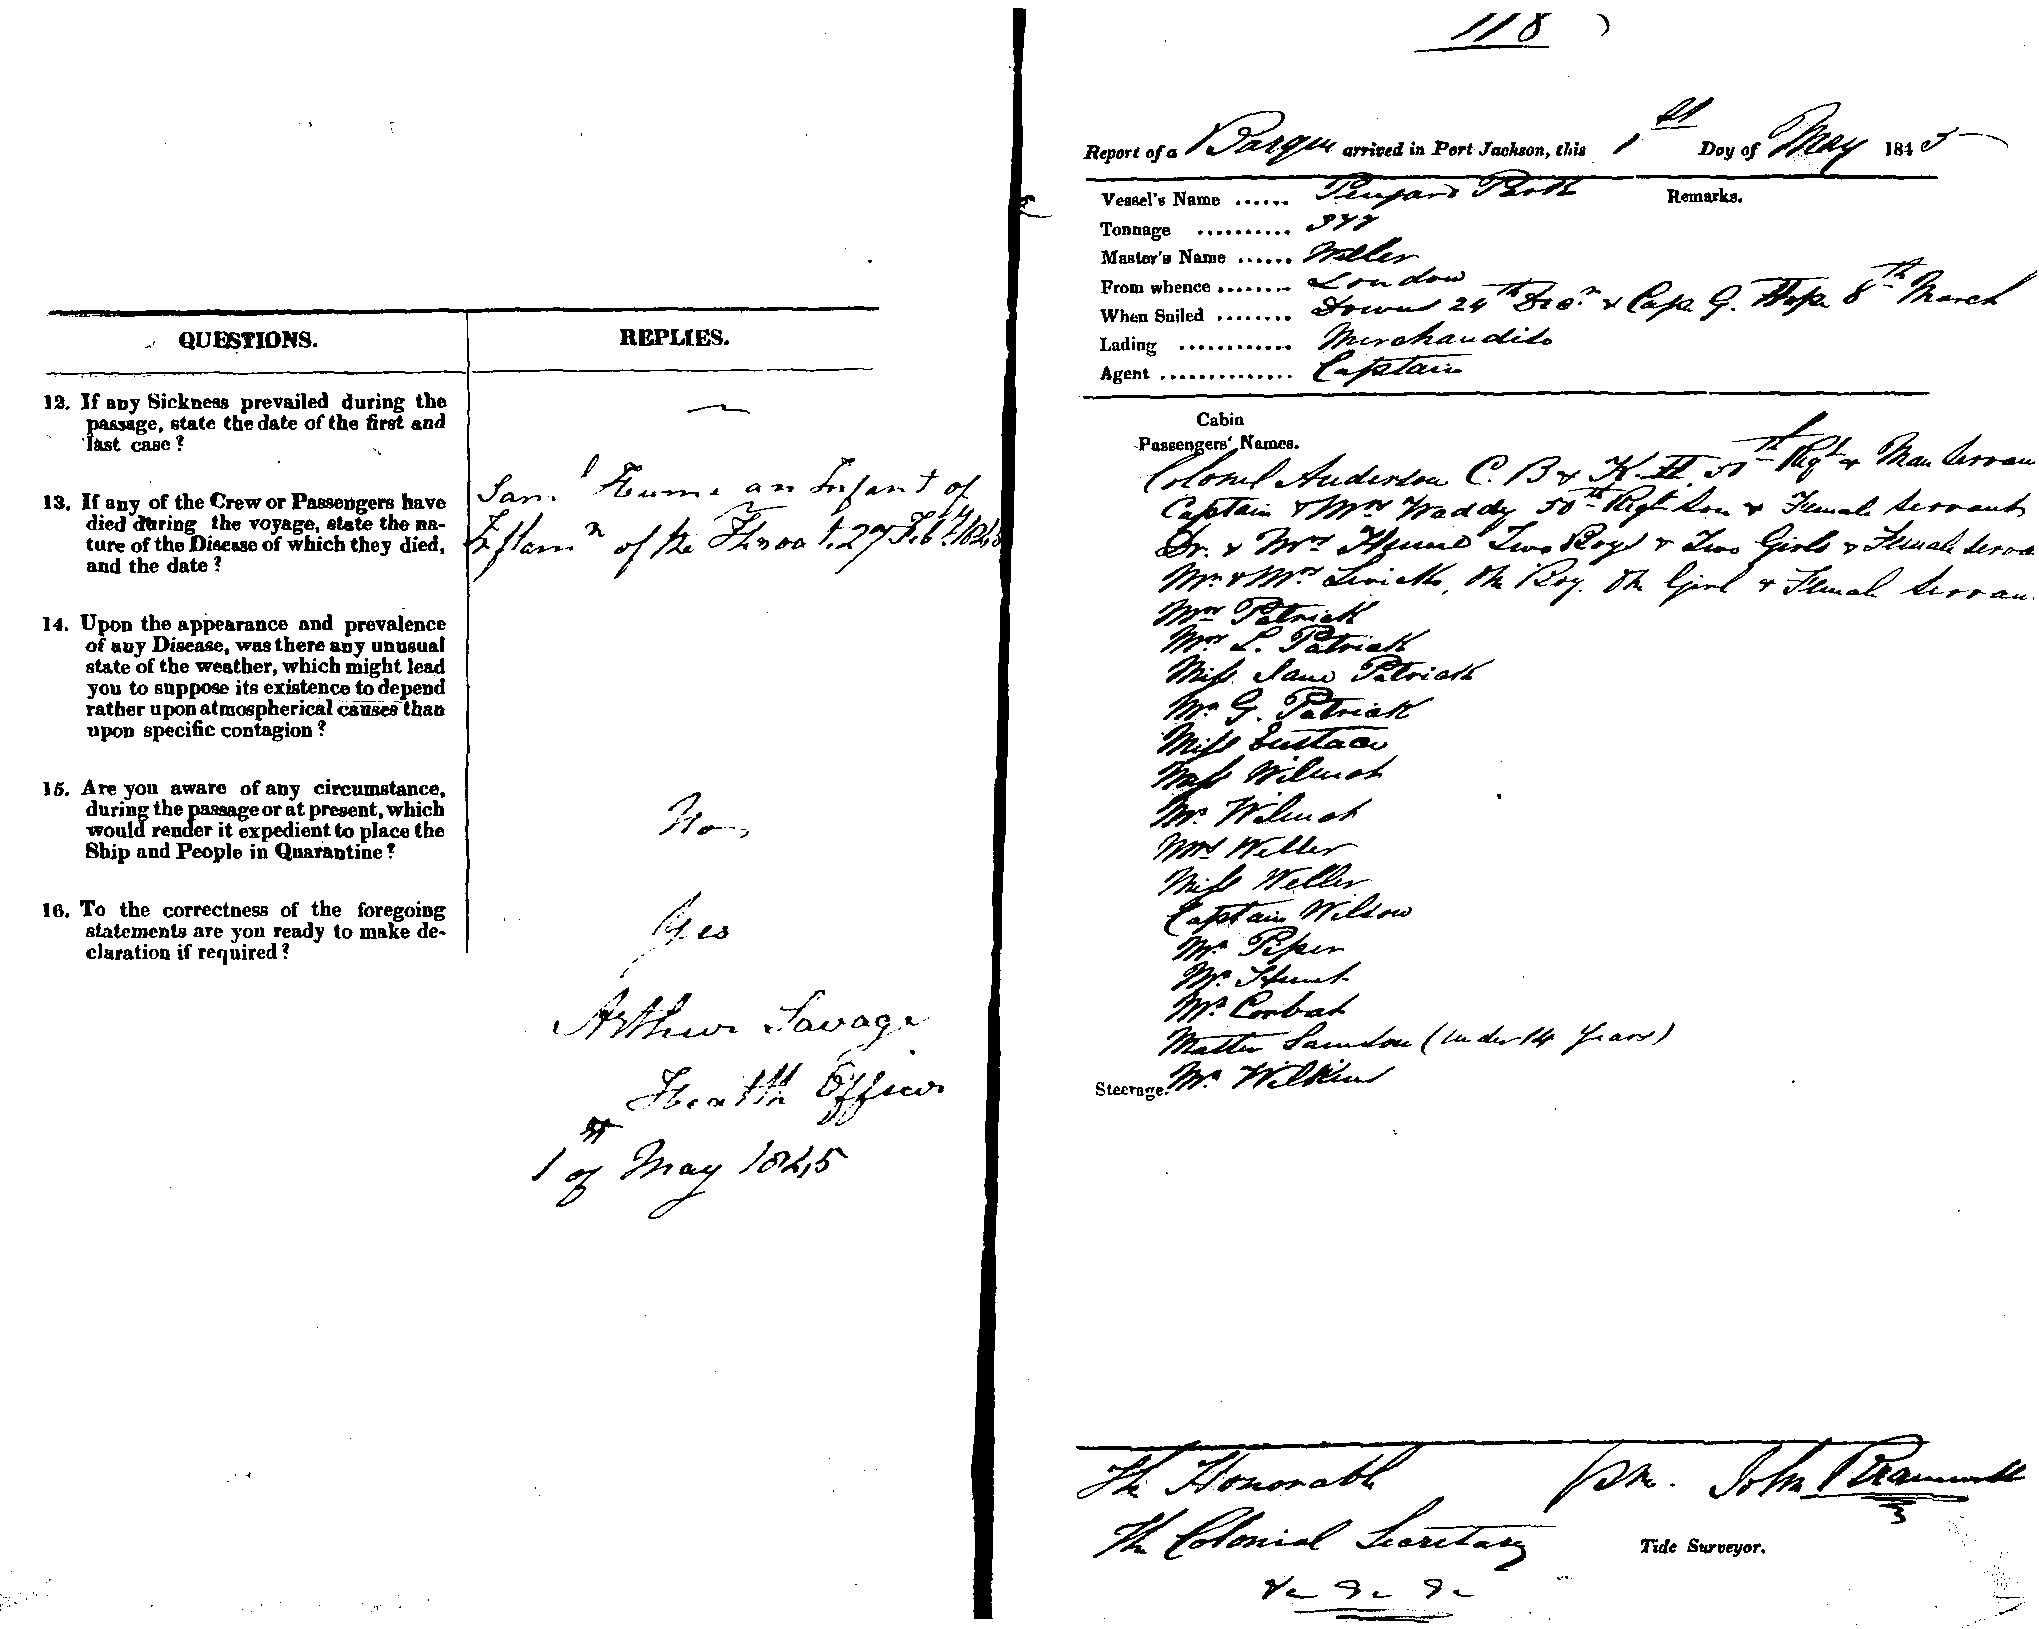 QUESTIONS. REPLIES.
12. If any Sickness prevailed during the
passage, state the date of the first and
last case?
13. If any of the Crew or Passengers have
died during the voyage, state the na-
ture of the Disease of which they died,
and the date?
Saml Hume an Infant of
Inflamn of the Throat. 27 Feby 1845
14. Upon the appearance and prevalence
of any Disease, was there any unusual
state of the weather, which might lead
you to suppose its existence to depend
rather upon atmospherical causes than
upon specific contagion?
15. Are you aware of any circumstance,
during the passage or at present, which
would render it expedient to place the
Ship and People in Quarantine?
No
16. To the correctness of the foregoing
statements are you ready to make de-
claration if required?
Yes
Arthur Savage
Health Officer
1st of May 1845
118
Report of a Barque arrived in Port Jackson, this 1st Day of May 1845
Vessel's Name ...... Penyard Park Remarks.
Tonnage ..........
Master's Name ...... Weller
From whence ........ London
When Sailed ........ Downs 24th Decr & Cape G. Hope 8th March
Lading ............ Merchandise
Agent .............. Captain
Cabin
Passengers' Names.
Colonel Anderson C. B & K. H. 50th Regt & Man Servan
Captain & Mrs Waddy 50th Regt Son & Female Servant
Dr. & Mrs Hume Two Boys & Two Girls & Female Serva
Mr. & Mrs One Boy. One Girl & Female Servan
Mrs Patrick
L. Patrick
Miss Jane Patrick
Mr G. Patrick
Miss Eustace
Miss Wilmot
Mr. Wilmot
Mrs Weller
Miss Weller
Captain Wilson
Mr. Piper
Mr. Hunt
Mr. Corbat
Master Samson (under 14 Years)
Steerage. Mr. Wilkins
The Honorable pm. John Bramwell
The Colonial Secretary Tide Surveyor.
&c &c &c